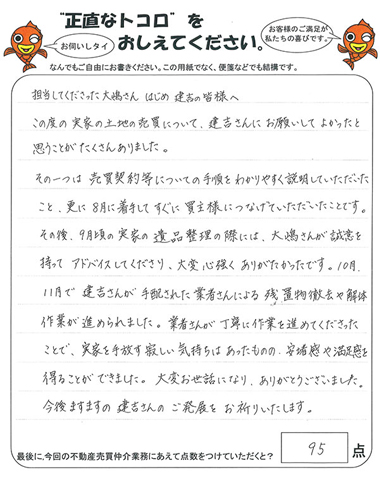 "正直なトコロ"を
おしえてください。
お伺いしタイ
お客様のご満足が
私たちの喜びです。
なんでもご自由にお書きください。この用紙でなく、便箋などでも結構です。
担当してくださった大嶋さん はじめ 建吉の皆様へ
この度の実家の土地の売買について、建吉さんにお願いしてよかったと
思うことがたくさんありました。
その一つは 売買契約等についての手順をわかりやすく説明していただいた
こと、更に8月に着手してすぐに買主様につなげていただいたことです。
その後、9月頃の実家の遺品整理の際には、大嶋さんが誠意を
持ってアドバイスしてくださり、大変心強くありがたかったです。10月、
11月で 建吉さんが手配された業者さんによる残置物撤去や解体
作業が進められました。業者さんが丁寧に作業を進めてくださった
ことで、実家を手放す寂しい気持ちはあったものの、安堵感や満足感を
得ることができました。大変お世話になり、ありがとうございました。
今後ますますの建吉さんのご発展をお祈りいたします。
最後に、今回の不動産売買仲介業務にあえて点数をつけていただくと?
95 点